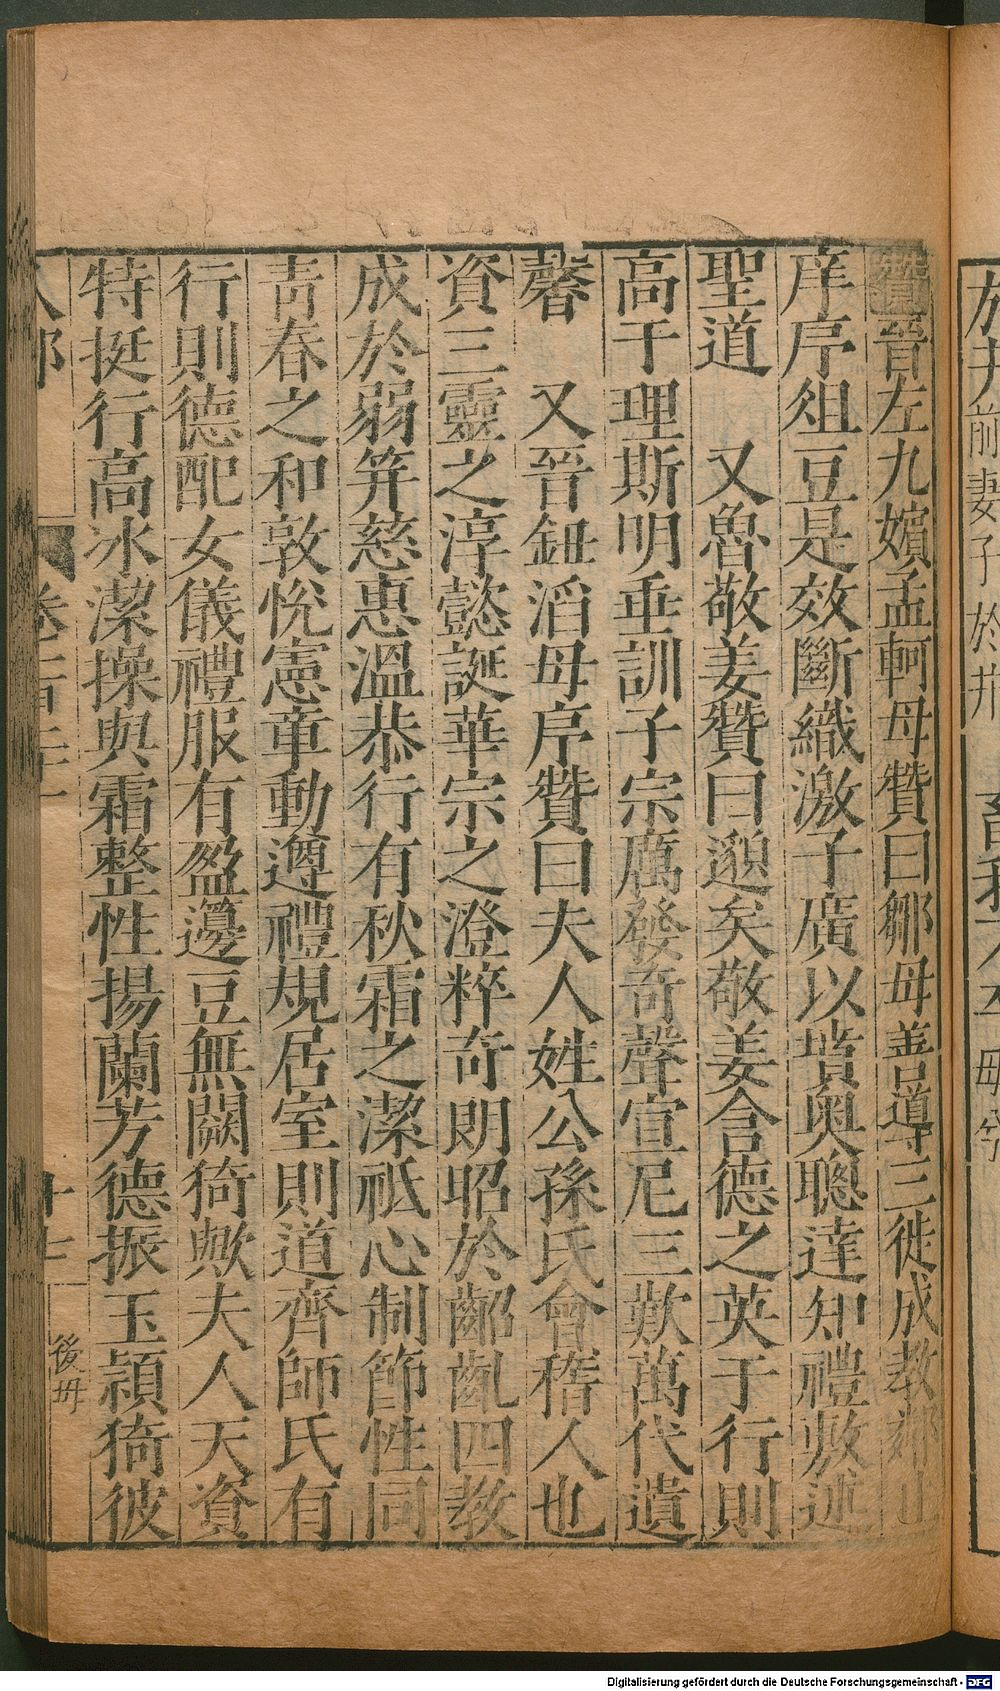 贊晉左九嬪孟軻母贊曰鄒母善導三徙成教鄰止
庠序俎豆是效斷織激子廣以墳奥聰達知禮敷述
聖道　又魯敬姜贊曰邈矣敬姜含德之英于行則
高于理斯明垂訓子宗厲發奇聲宣尼三歎萬代遺
馨　又晉鈕滔母序贊曰夫人姓公孫氏會稽人也
資三靈之淳懿誕華宗之澄粹奇朗昭於齠齓四教
成於弱笄慈惠溫恭行有秋霜之潔祗心制節性同
青春之和敦悅憲章動遵禮規居室則道齊師氏有
行則德配女儀禮服有盈籩豆無闕猗歟夫人天資
特挺行高冰潔操與霜整性揚蘭芳德振玉穎猗彼
人部
卷一百二十一
十七
後母
前妻子於
Digitalisierung gefördert durch die Deutsche Forschungsgemeinschaft - DFG